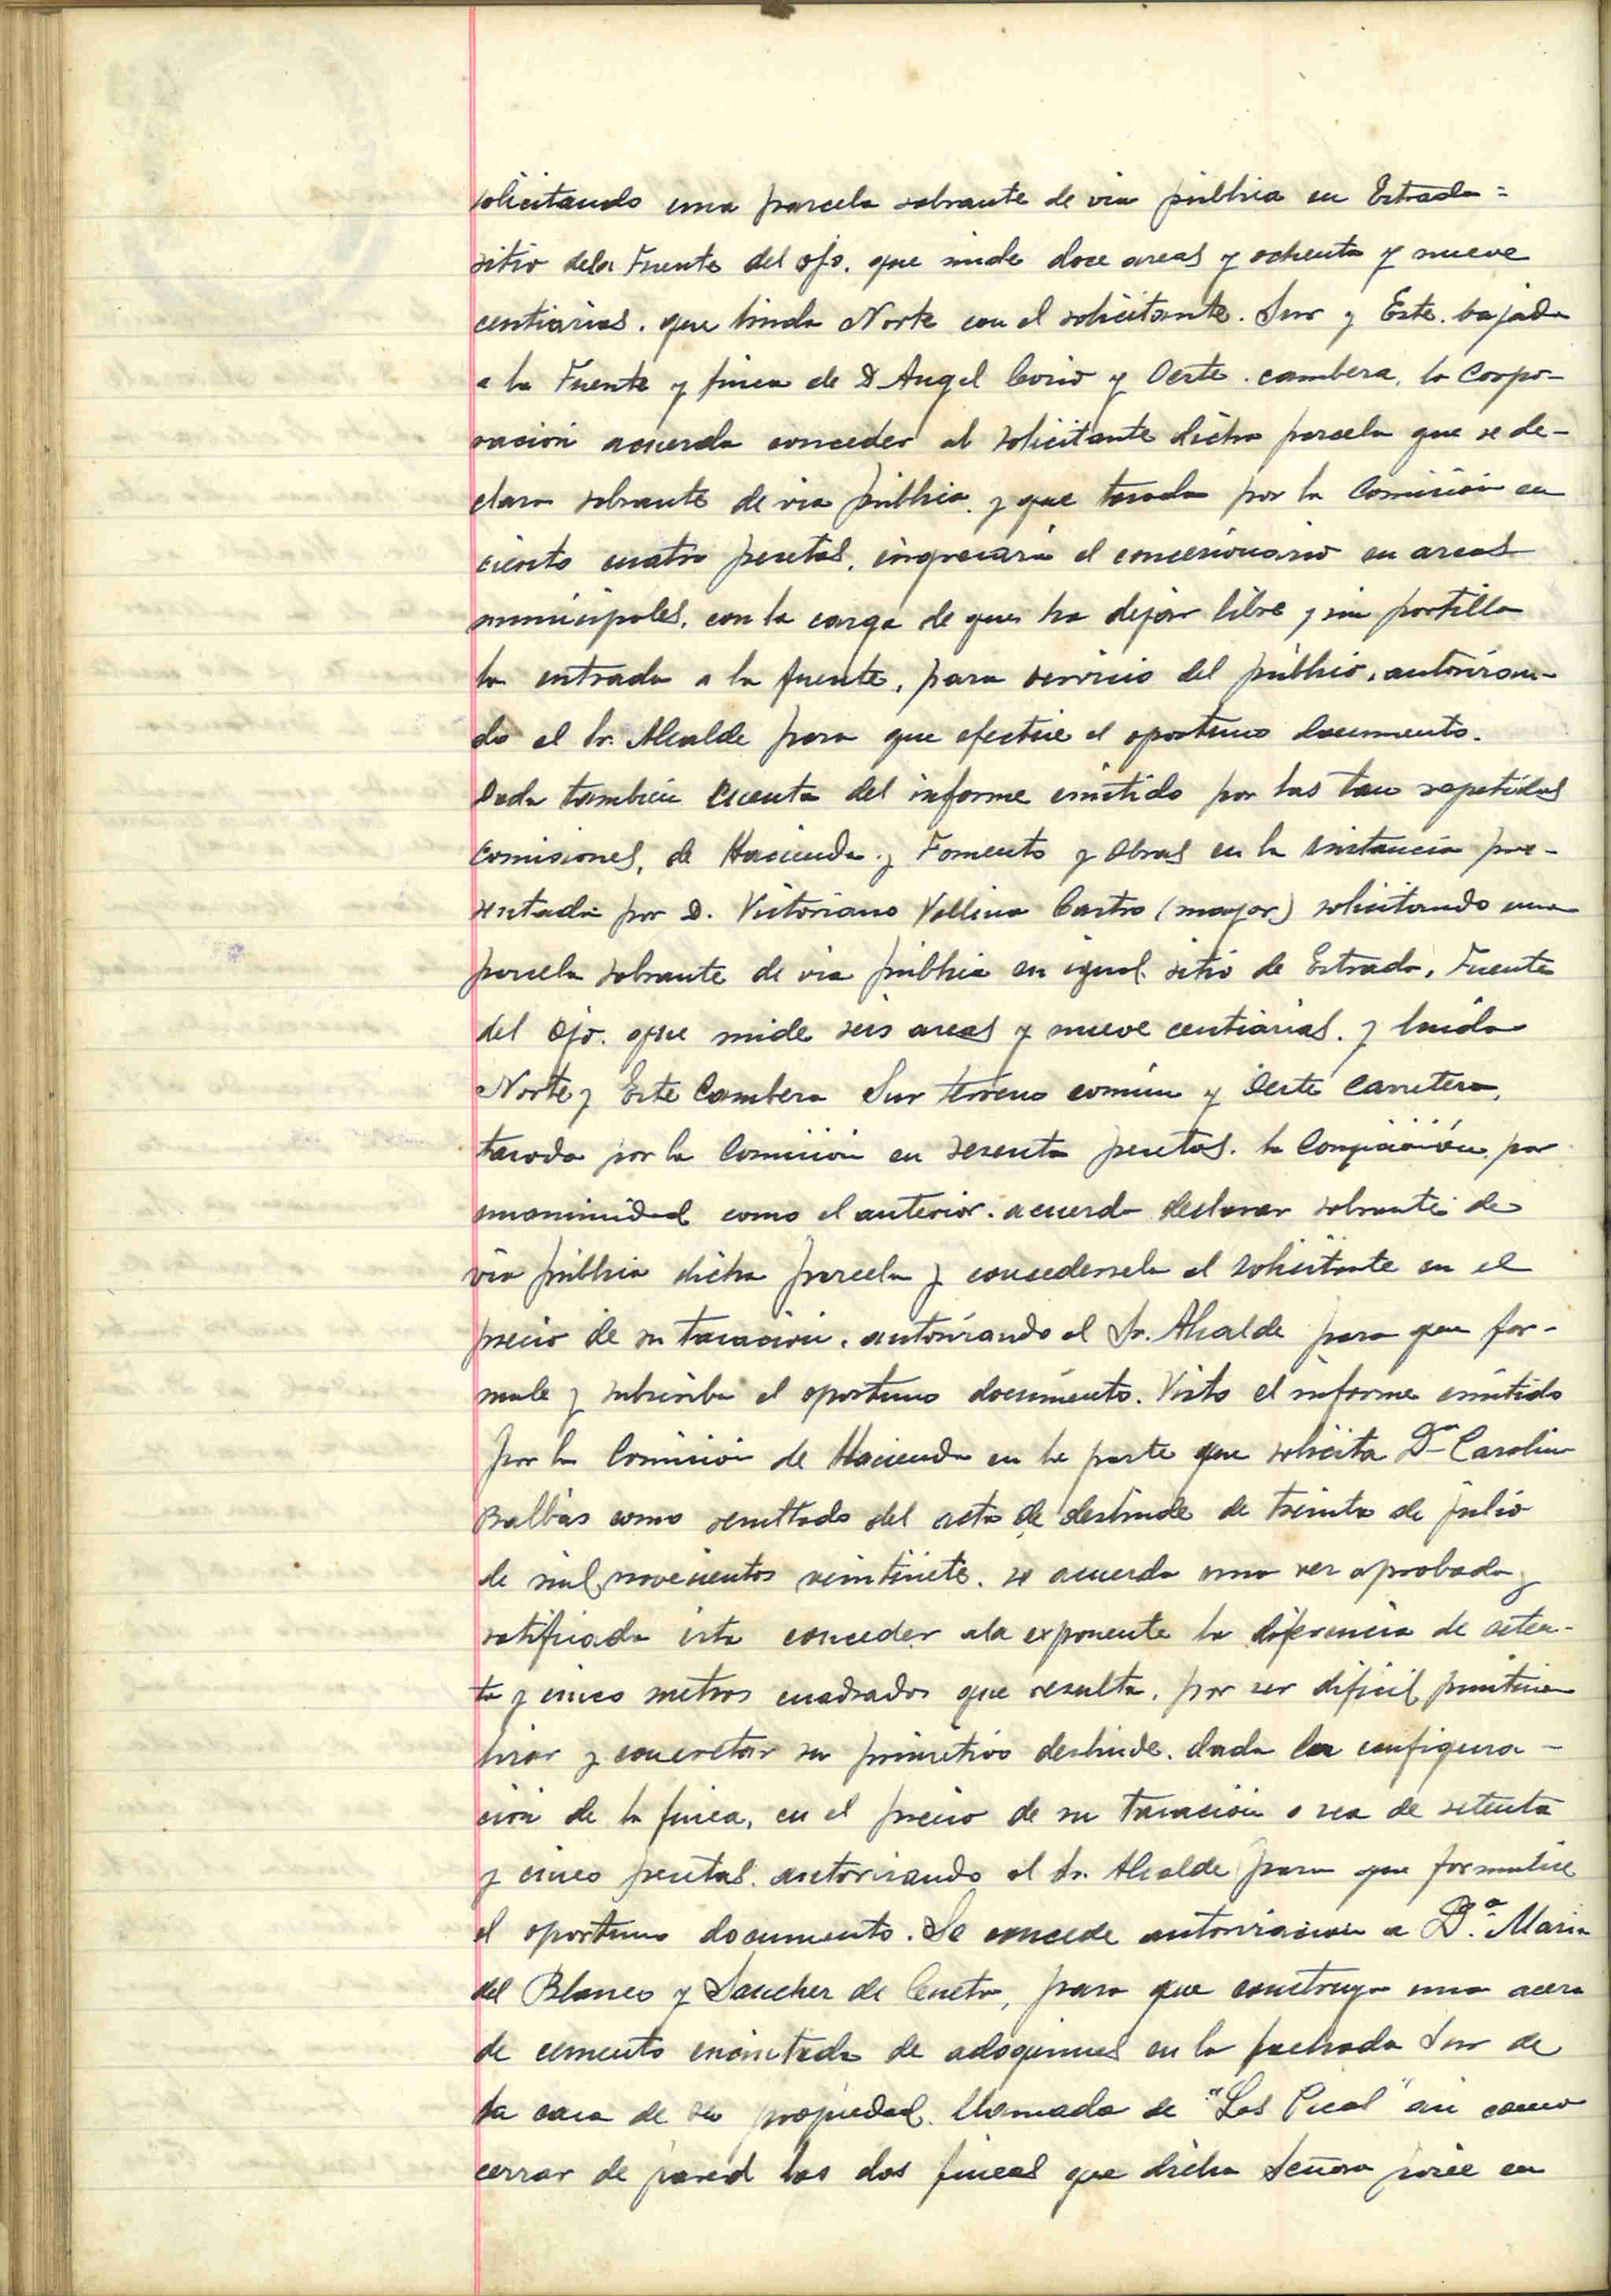 solicitando una parcela sobrante de via pública en Estrada=
sitio dela Fuente del ojo. que mide doce areas y ochenta y nueve
centiarias. que linda Norte con el solicitante. Sur y Este. bajada
a la Fuente y finca de D Angel Corio y Oeste. cambera, la Corpo-
ración acuerda conceder al solicitante dicha parcela que se de-
clara sobrante de via pública. y que tasada por la Comisión en
ciento cuatro pesetas, ingresará el concesionario en arcas
municipales, con la carga de que ha dejar libre y sin portilla
la entrada a la fuente, para servicio del público, autorizan-
do al Sr. Alcalde para que efectúe el oportuno documento.
Dada también cuenta del informe emitido por las tan repetidas
Comisiones, de Hacienda y Fomento y Obras en la instancia pre-
sentada por D. Victoriano Vallina Castro (mayor) solicitando una
parcela sobrante de via pública en igual sitio de Estrada, Fuente
del Ojo. que mide seis areas y nueve centiarias. y linda
Norte y Este Cambera Sur terreno común y Oeste Carretera,
tasada por la Comisión en sesenta pesetas. la por
unanimidad como el anterior. acuerda declarar sobrante de
via pública dicha parcela y concedersela al solicitante en el
precio de su tasación, autorizando al Sr. Alcalde para que for-
mule y subscriba el oportuno documento. Visto el informe emitido
por la Comisión de Hacienda en la parte que solicita Dª Carolina
Balbás como resultado del acta de deslinde de treinta de julio
de mil novecientos veintisiete. se acuerda una vez aprobada y
ratificada esta conceder ala exponente la diferencia de seten-
ta y cinco metros cuadrados que resulta, por ser dificil
lizar y concretar su primitivo deslinde. dada la configura-
ción de la finca, en el precio de su tasación o sea de setenta
y cinco pesetas. autorizando al Sr. Alcalde para que formalice
el oportuno documento. Se concede autorización a D.ª Maria
del Blanco y Sanchez de Cueto, para que construya una acera
de cemento encintada de adoquines en la fachada Sur de
la casa de su propiedad. llamada de "Las Picas" asi como
cerrar de pared las dos fincas que dicha Señora posee en